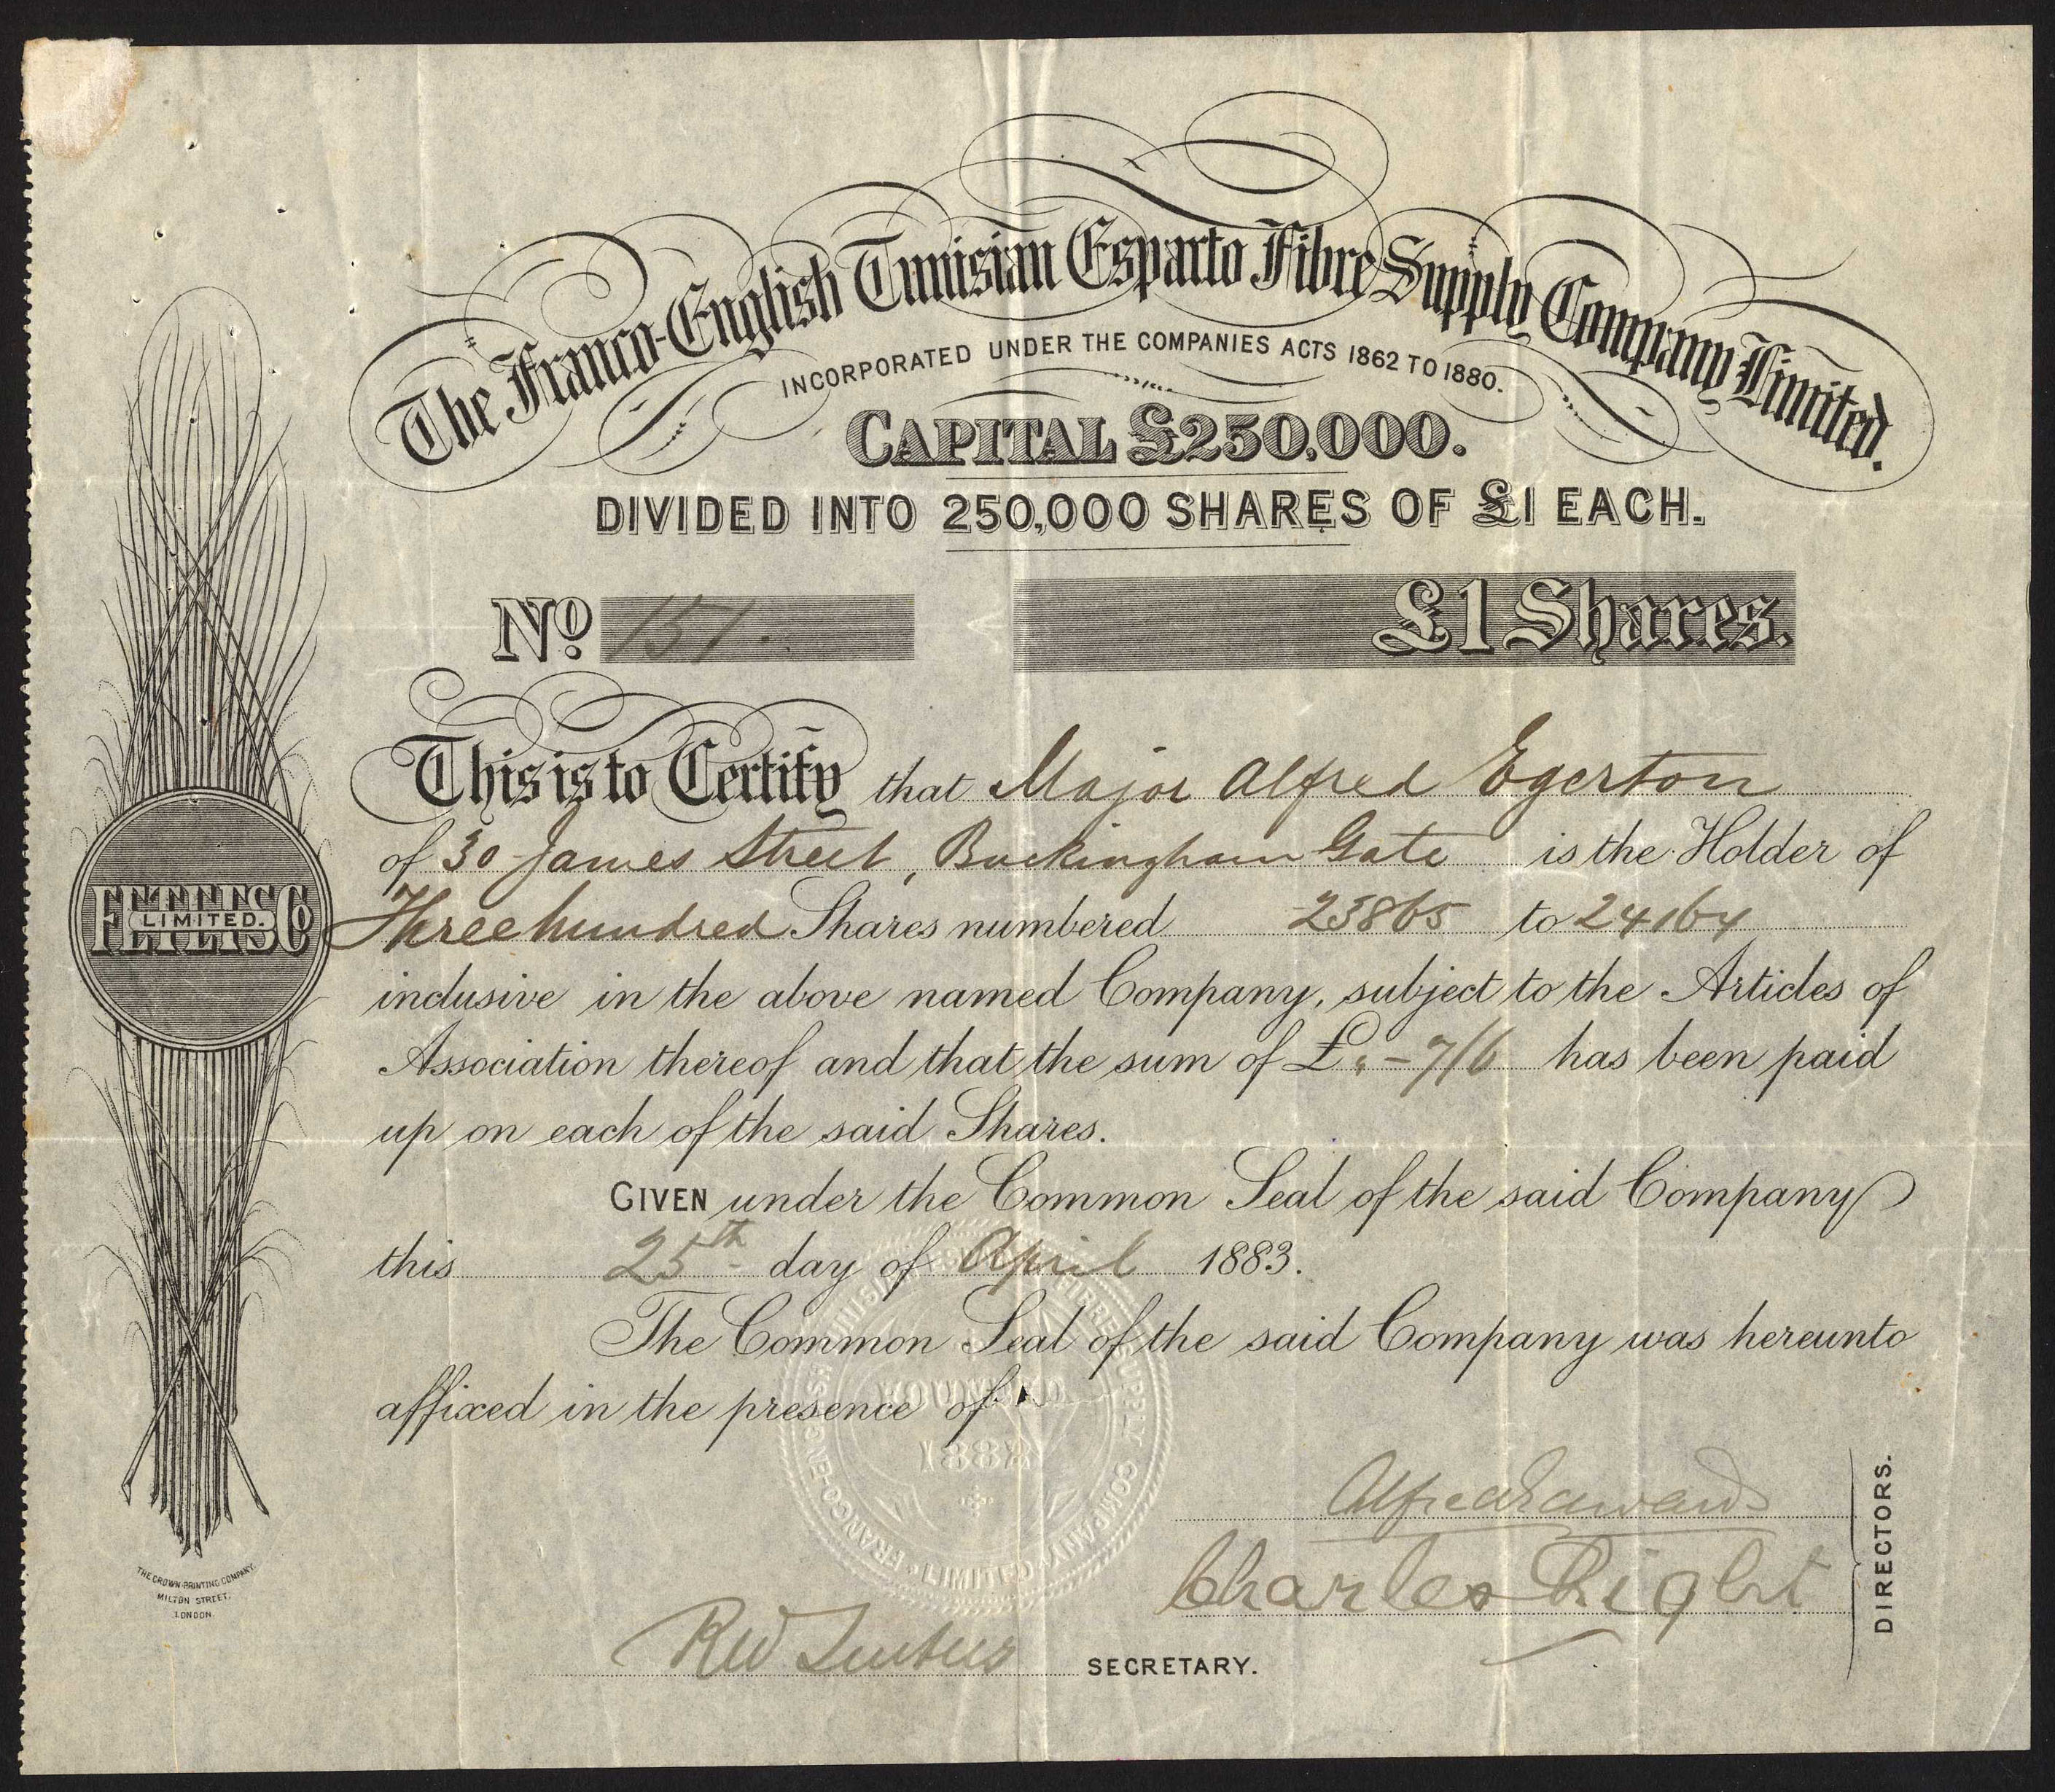 The Franco-English Tunisian Esparto Fibre Supply Company Limited.
INCORPORATED UNDER THE COMPANIES ACTS 1862 TO 1880.
CAPITAL £250,000.
DIVIDED INTO 250,000 SHARES OF £1 EACH.
No. 151.
£1 Shares.
This is to Certify that Major Alfred Egerton
of 30 James Street, Buckingham Gate is the Holder of
Three hundred Shares numbered 23865 to 24164
inclusive in the above named Company, subject to the Articles of
Association thereof and that the sum of £ " - 7/6 has been paid
up on each of the said Shares.
GIVEN under the Common Seal of the said Company
this 25th day of April 1883.
The Common Seal of the said Company was hereunto
affixed in the presence of
Alfred Edwards
Charles Right
DIRECTORS.
R W
SECRETARY.
FETEFSCo
LIMITED.
THE CROWN PRINTING COMPANY.
MILTON STREET,
LONDON.
FRANCO-ENGLISH TUNISIAN FIBRE SUPPLY COMPANY LIMITED
1882